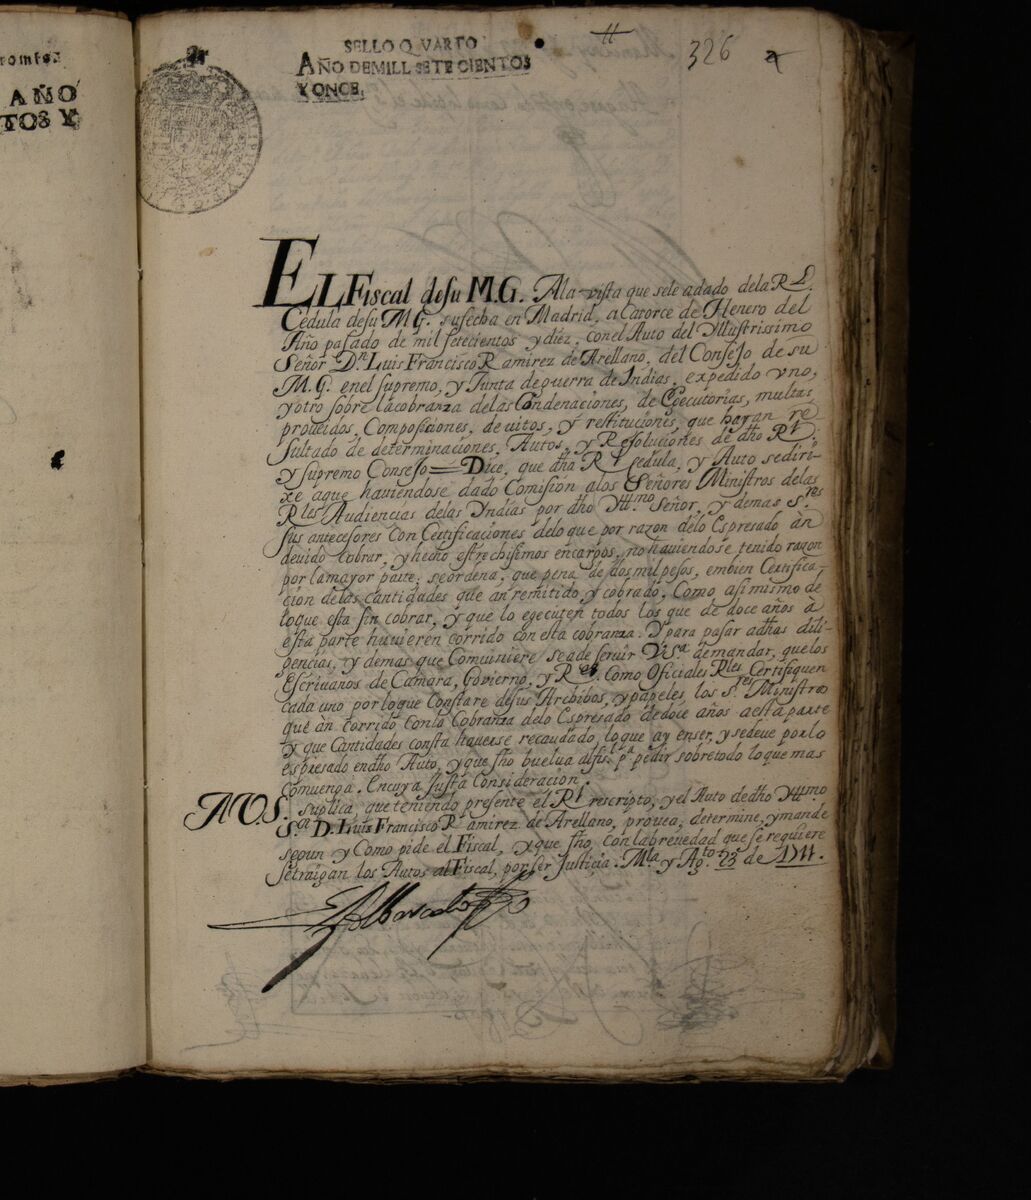 romes.
AÑO
TOS Y
SELLO QVARTO
AÑO DE MILL SETECIENTOS
Y ONCE.
326
EL Fiscal de su M.G. Ala vista que sele adado dela Rl.
Cedula de su M.G. su fecha en Madrid, a Catorce de Henero del
Año pasado de mil setecientos y diez, con el Auto del Yllustrissimo
Señor Dn. Luis Francisco Ramirez de Arellano, del Consejo de su
M.G. en el supremo, y Junta de guerra de Indias, expedido vno,
y otro sobre la cobranza de las Condenaciones, de Egecutorias, multas,
proueidos, Composiciones, devitos, y restituciones, que hayan re
sultado de determinaciones, Autos, y Resoluciones de dho Rl.
y supremo Consejo = Dice, que dha Rl. Cedula, y Auto se diri-
xe a que haviendose dado Comision a los Señores Ministros de las
Rles. Audiencias de las Yndias por dho Yllmo. Señor, y demas Sres.
sus antecesores con Certificaciones de lo que por razon delo Espresado án
devido Cobrar, y hecho estrechisimos encargos, no haviendose tenido razon
por la mayor parte, se ordena, que pena de dos mil pesos, embien Certifica-
cion de las cantidades que án remitido y cobrado, Como asimismo de
lo que esta sin cobrar, y que lo egecuten todos los que de doce años a
esta parte huvieren corrido con esta cobranza. Y para pasar adhas dili-
gencias, y demas que Comviniere se ade servir V.Sa. demandar, que los
Escrivanos de Camara, Govierno, y Res. Como Oficiales Rles. Certifiquen
cada uno por lo que Constare de sus Archibos, y papeles, los Sres. Ministros
que án corrido con la Cobranza delo Espresado de doce años a esta parte
y que Cantidades consta haverse recaudado, lo que ay en ser, y se deve por lo
espresado en dho Auto, y que fho buelua al fisl. pa. pedir sobre todo lo que mas
Comvenga. En cuya Justa Consideracion.
A V.S. suplica, que teniendo presente el Rl. rescripto, y el Auto de dho Yllmo.
Sr. D. Luis Francisco Ramirez de Arellano, prouea, determine, y mande
segun y Como pide el Fiscal, y que fho, con la brevedad que se requiere
se traigan los Autos al Fiscal, por ser Justicia. Mla. y Agto. 23 de 1711.